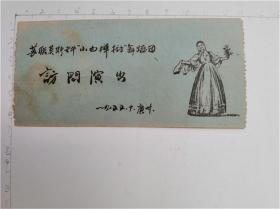 苏联莫斯科"小白桦树"舞蹈团
訪問演出
一九五五.九.廣州.